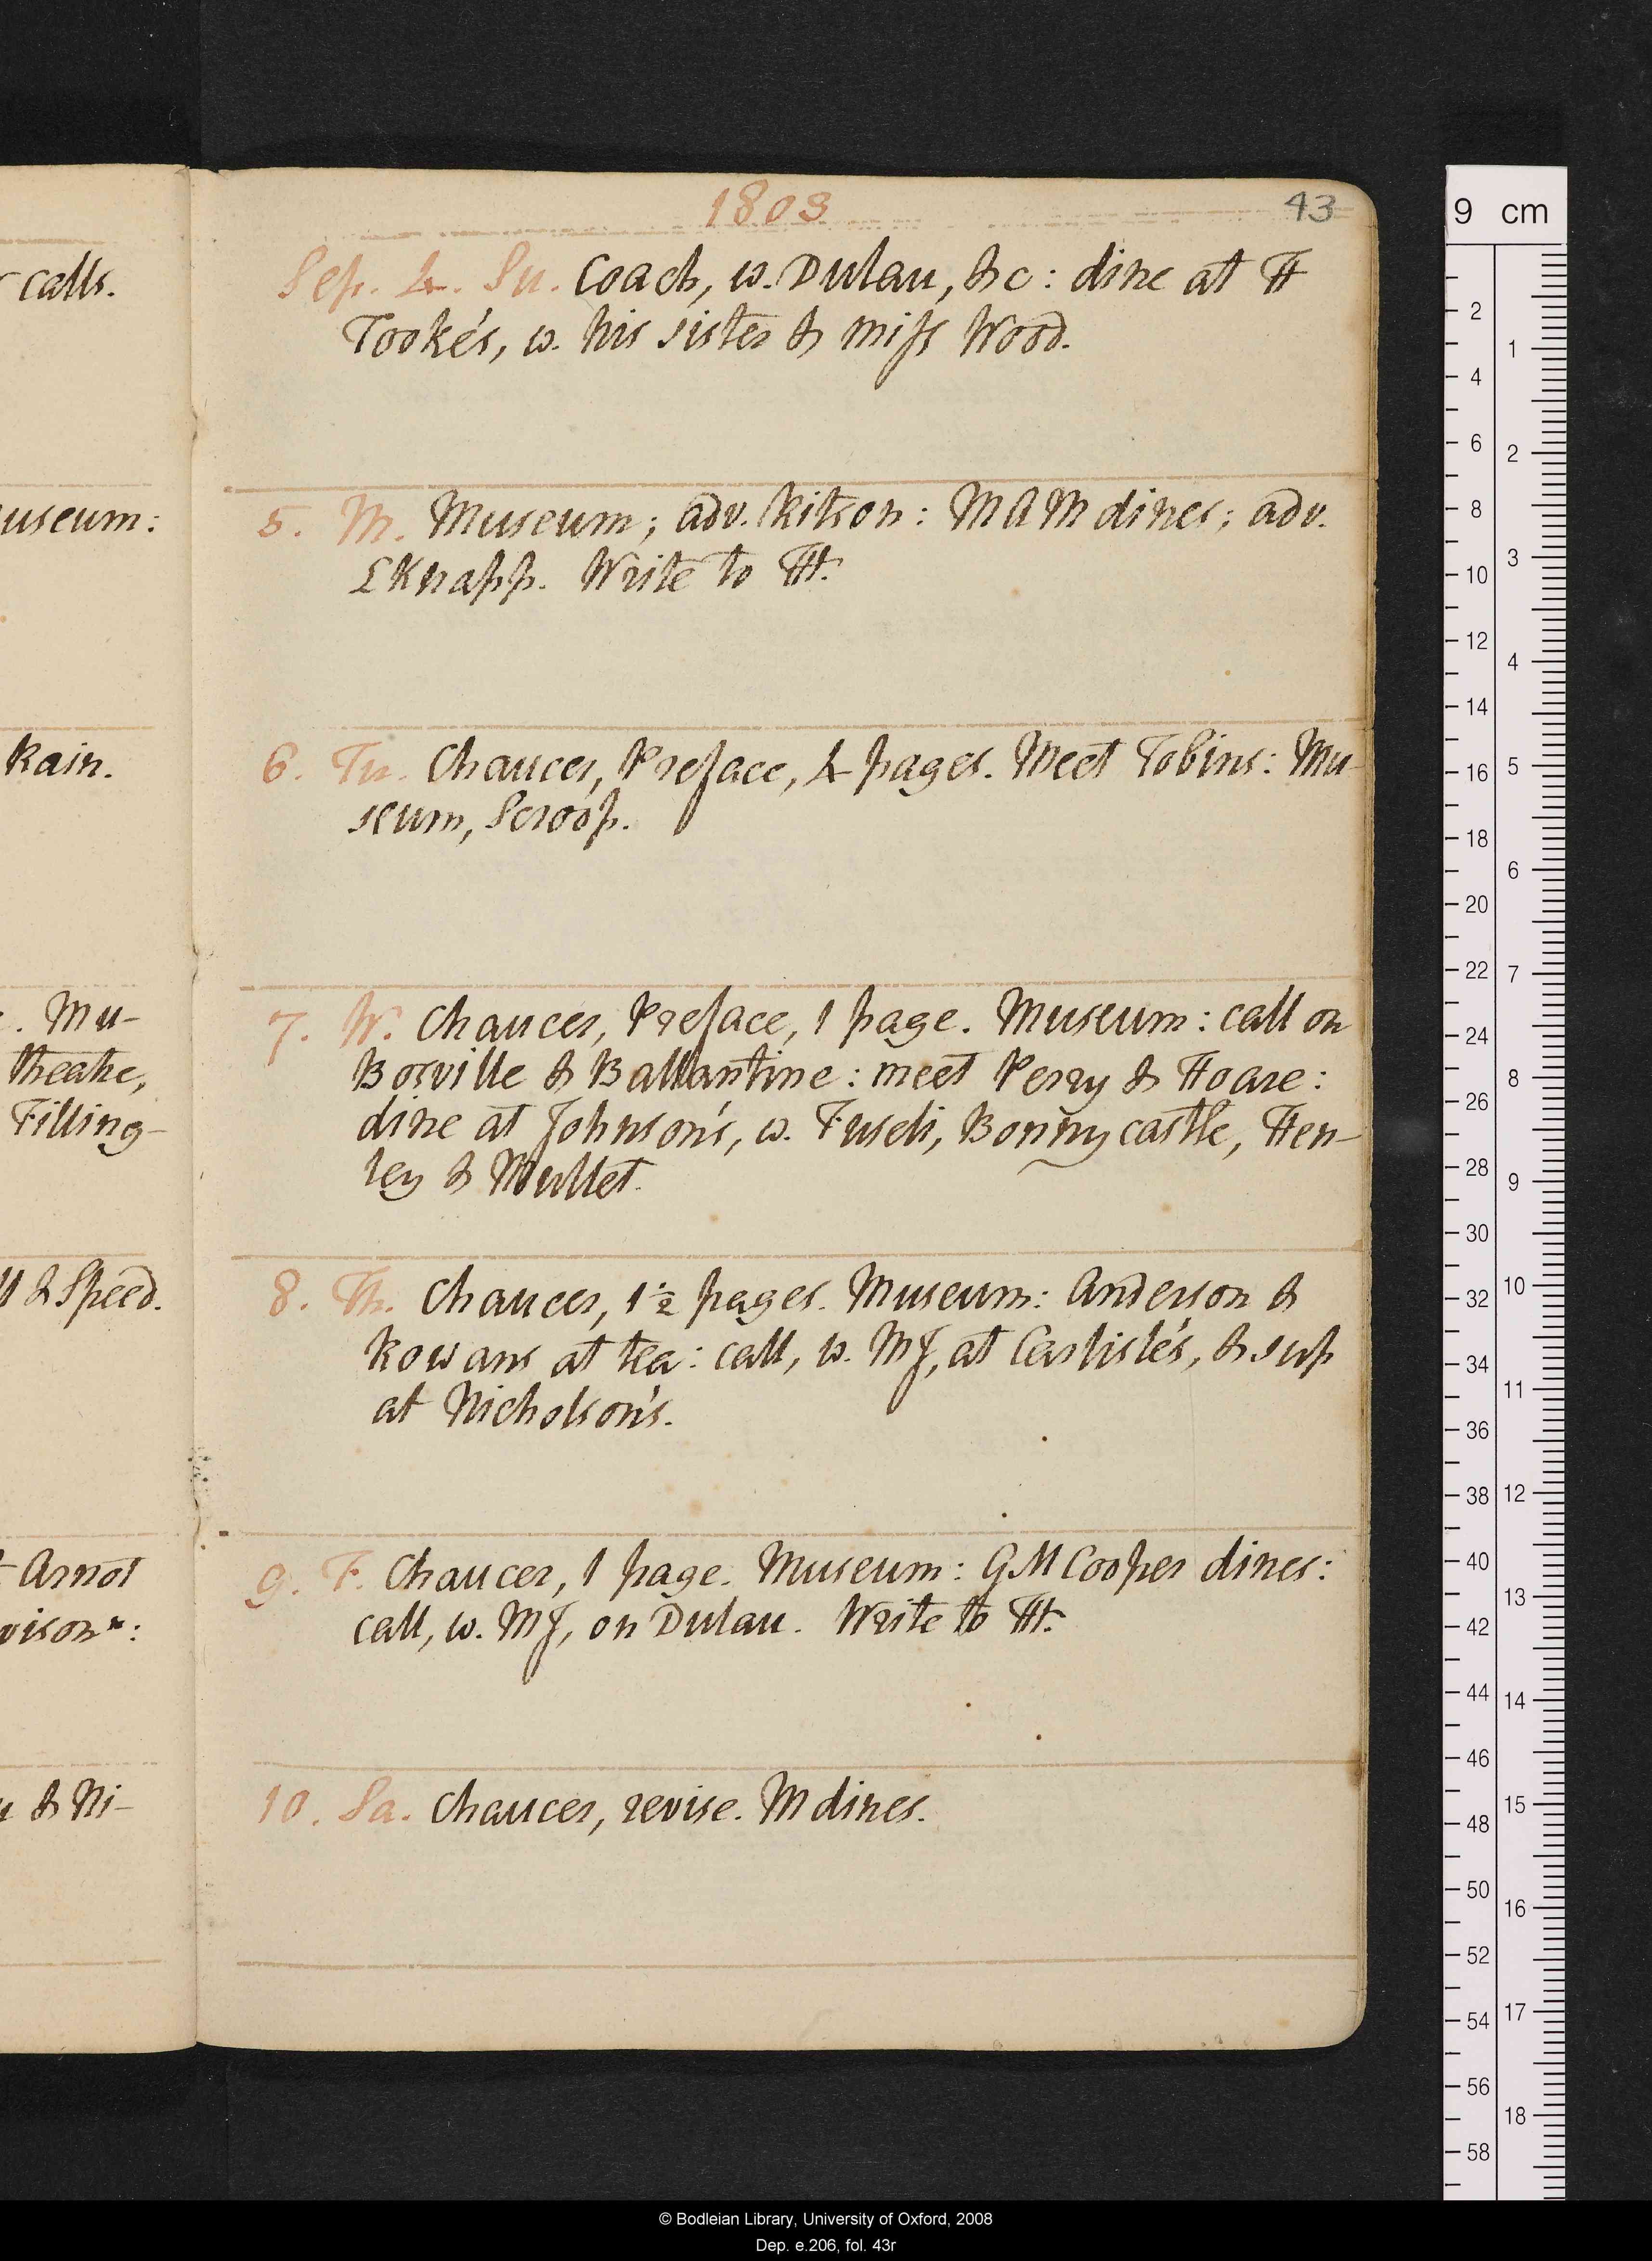 1803
43
Sep. 4. Su. Coach, w. Dulau, &c: dine at H
Tooke's, w. his sister & miss Wood.
5. M. Museum; adv. Ritson: M A M dines; adv.
L Knapp. Write to Ht.
6. Tu. Chaucer, Preface, 4 pages. Meet Tobins: Mu-
seum, Scroop.
7. W. Chaucer, Preface, 1 page. Museum: call on
Bosville & Ballantine: meet Perry & Hoare:
dine at Johnson's, w. Fuseli, Bonnycastle, Hen-
ley & Mullet.
8. Th. Chaucer, 1½ pages. Museum: Anderson &
Rowans at tea: call, w. MJ, at Carlisle's, & sup
at Nicholson's.
9. F. Chaucer, 1 page. Museum: G.M Cooper dines:
call, w. MJ, on Dulau. Write to Ht.
10. Sa. Chaucer, revise. M dines.
calls.
useum:
Rain.
. Mu-
theatre,
Filling-
& Speed.
Arnot
vison:
& Ni-
9 cm
2
4
6
8
10
12
14
16
18
20
22
24
26
28
30
32
34
36
38
40
42
44
46
48
50
52
54
56
58
1
2
3
4
5
6
7
8
9
10
11
12
13
14
15
16
17
18
© Bodleian Library, University of Oxford, 2008
Dep. e.206, fol. 43r